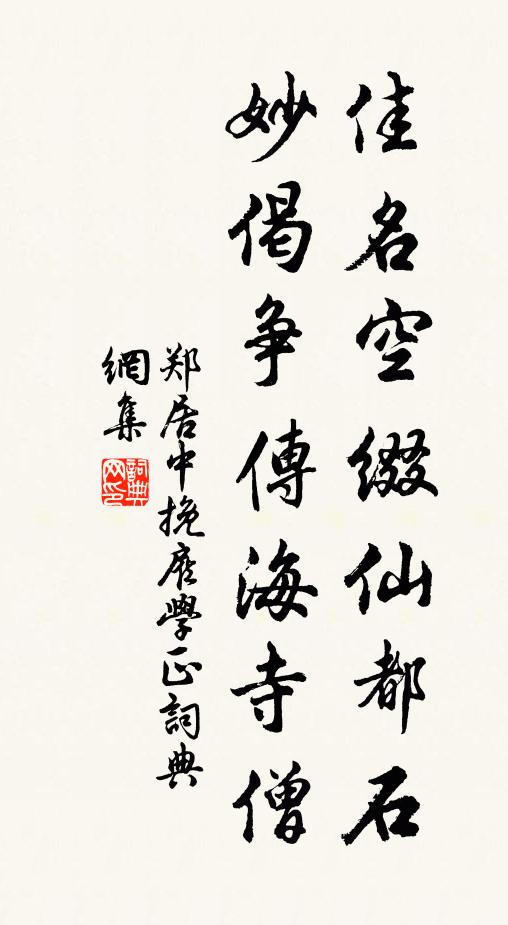 佳名空缀仙都石
妙偈争傳海寺僧
郑居中挽庞學正詞典
網集
詞典
网印